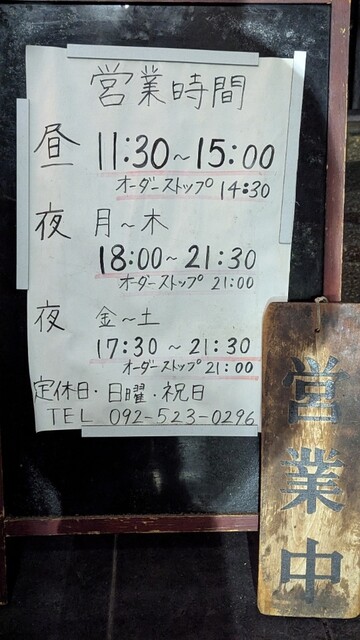 営業時間
昼 11:30~15:00
オーダーストップ 14:30
夜 月~木
18:00~21:30
オーダーストップ 21:00
夜 金~土
17:30~21:30
オーダーストップ 21:00
定休日・日曜・祝日
TEL 092-523-0296
営業中